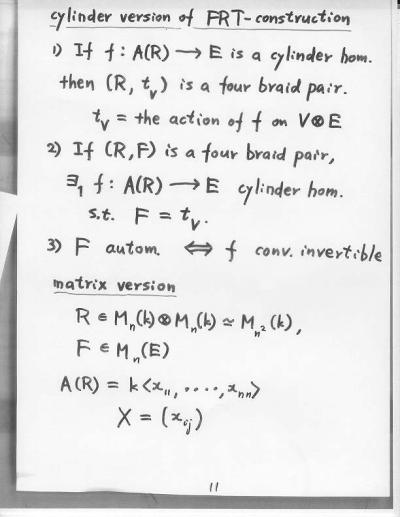 cylinder version of FRT-construction
1) If f : A(R) → E is a cylinder hom.
then (R, t_V) is a four braid pair.
t_V = the action of f on V⊗E
2) If (R,F) is a four braid pair,
∃₁ f : A(R) → E cylinder hom.
s.t. F = t_V.
3) F autom. ⇔ f conv. invertible
matrix version
R ∈ M_n(k)⊗M_n(k) ≃ M_{n²}(k),
F ∈ M_n(E)
A(R) = k<x₁₁, ····, x_{nn}>
X = (x_{ij})
11